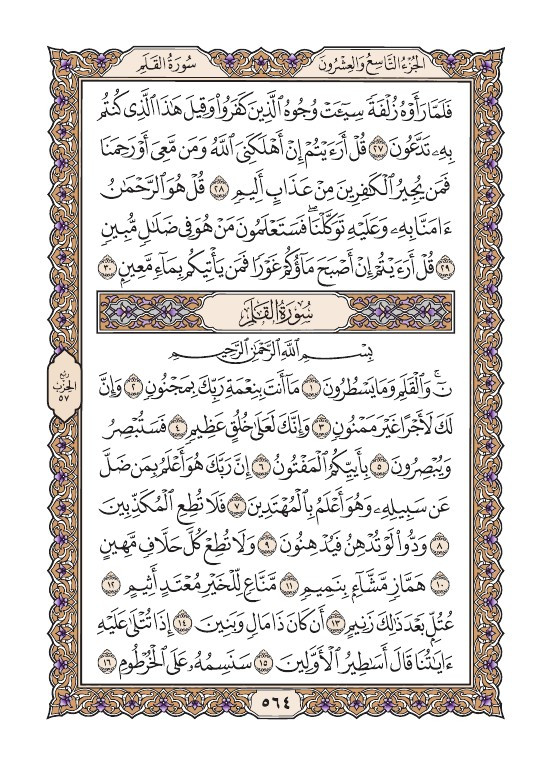 الجُزْءُ التَّاسِعُ وَالعِشْرُونَ
سُورَةُ القَلَمِ
فَلَمَّا رَأَوۡهُ زُلۡفَةٗ سِيٓـَٔتۡ وُجُوهُ ٱلَّذِينَ كَفَرُواْ وَقِيلَ هَٰذَا ٱلَّذِي كُنتُم
بِهِۦ تَدَّعُونَ ٢٧ قُلۡ أَرَءَيۡتُمۡ إِنۡ أَهۡلَكَنِيَ ٱللَّهُ وَمَن مَّعِيَ أَوۡ رَحِمَنَا
فَمَن يُجِيرُ ٱلۡكَٰفِرِينَ مِنۡ عَذَابٍ أَلِيمٖ ٢٨ قُلۡ هُوَ ٱلرَّحۡمَٰنُ
ءَامَنَّا بِهِۦ وَعَلَيۡهِ تَوَكَّلۡنَاۖ فَسَتَعۡلَمُونَ مَنۡ هُوَ فِي ضَلَٰلٖ مُّبِينٖ
٢٩ قُلۡ أَرَءَيۡتُمۡ إِنۡ أَصۡبَحَ مَآؤُكُمۡ غَوۡرٗا فَمَن يَأۡتِيكُم بِمَآءٖ مَّعِينِۭ ٣٠
سُورَةُ القَلَمِ
بِسۡمِ ٱللَّهِ ٱلرَّحۡمَٰنِ ٱلرَّحِيمِ
نٓۚ وَٱلۡقَلَمِ وَمَا يَسۡطُرُونَ ١ مَآ أَنتَ بِنِعۡمَةِ رَبِّكَ بِمَجۡنُونٖ ٢ وَإِنَّ
لَكَ لَأَجۡرًا غَيۡرَ مَمۡنُونٖ ٣ وَإِنَّكَ لَعَلَىٰ خُلُقٍ عَظِيمٖ ٤ فَسَتُبۡصِرُ
وَيُبۡصِرُونَ ٥ بِأَييِّكُمُ ٱلۡمَفۡتُونُ ٦ إِنَّ رَبَّكَ هُوَ أَعۡلَمُ بِمَن ضَلَّ
عَن سَبِيلِهِۦ وَهُوَ أَعۡلَمُ بِٱلۡمُهۡتَدِينَ ٧ فَلَا تُطِعِ ٱلۡمُكَذِّبِينَ
٨ وَدُّواْ لَوۡ تُدۡهِنُ فَيُدۡهِنُونَ ٩ وَلَا تُطِعۡ كُلَّ حَلَّافٖ مَّهِينٍ
١٠ هَمَّازٖ مَّشَّآءِۭ بِنَمِيمٖ ١١ مَّنَّاعٖ لِّلۡخَيۡرِ مُعۡتَدٍ أَثِيمٍ ١٢
عُتُلِّۭ بَعۡدَ ذَٰلِكَ زَنِيمٍ ١٣ أَن كَانَ ذَا مَالٖ وَبَنِينَ ١٤ إِذَا تُتۡلَىٰ عَلَيۡهِ
ءَايَٰتُنَا قَالَ أَسَٰطِيرُ ٱلۡأَوَّلِينَ ١٥ سَنَسِمُهُۥ عَلَى ٱلۡخُرۡطُومِ ١٦
ربع
الحزب
٥٧
٥٦٤